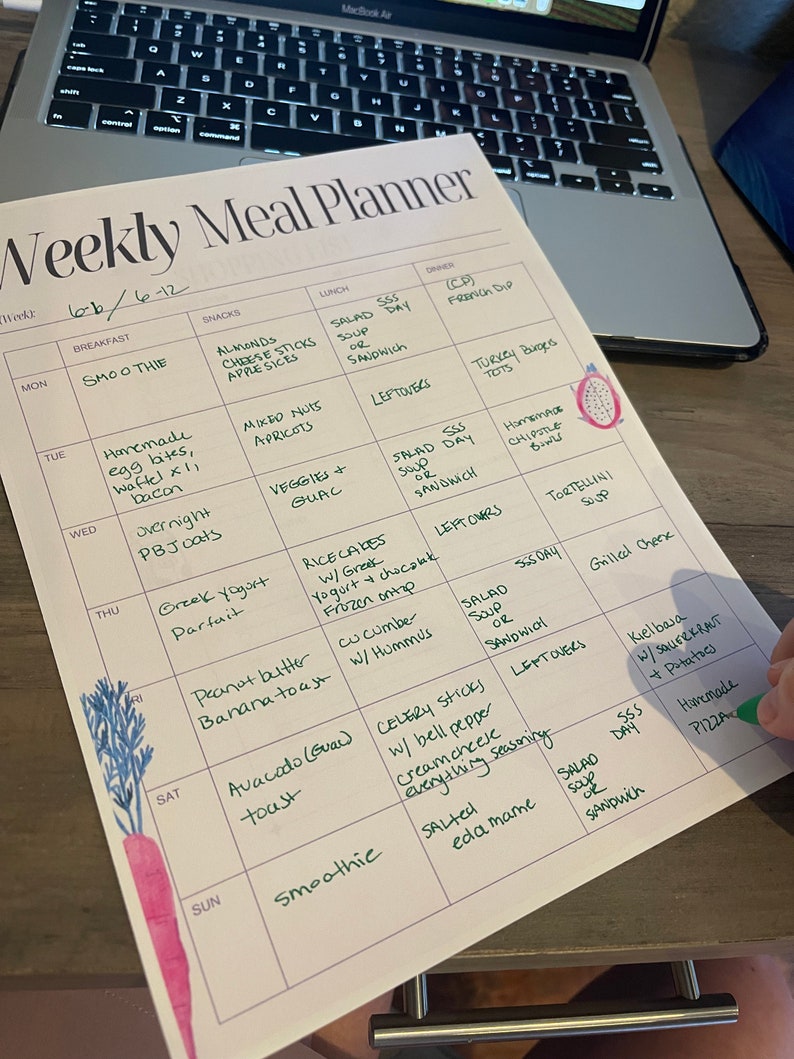 MacBook Air
tab
Q
W
E
R
T
Y
U
I
O
P
caps lock
A
S
D
F
G
H
J
K
L
return
shift
Z
X
C
V
B
N
M
shift
fn
control
option
command
option
Weekly Meal Planner
(Week): 6-6 / 6-12
BREAKFAST
SNACKS
LUNCH
DINNER
MON
SMOOTHIE
ALMONDS
CHEESE STICKS
APPLE SICES
SSS
SALAD DAY
SOUP
OR
SANDWICH
(CP)
FRENCH DIP
TUE
Homemade
egg bites,
waffel x 1,
bacon
MIXED NUTS
APRICOTS
LEFTOVERS
TURKEY Burgers
TOTS
WED
overnight
PBJ oats
VEGGIES +
GUAC
SSS
SALAD DAY
SOUP
OR
SANDWICH
HOMEMADE
CHIPOTLE
BOWLS
THU
Greek Yogurt
Parfait
RICE CAKES
w/ Greek
Yogurt + chocolate
Frozen on top
LEFTOVERS
TORTELLINI
SOUP
RI
Peanut butter
Banana toast
CUCUMBER
w/ HUMMUS
SSS DAY
SALAD
SOUP
OR
SANDWICH
Grilled Cheese
SAT
Avacodo (Guac)
toast
CELERY STICKS
w/ bell pepper
cream cheese
everything seasoning
LEFTOVERS
Kielbasa
w/ SAUERKRAUT
+ Potatoes
SUN
smoothie
SALTED
edamame
SSS
DAY
SALAD
SOUP
OR
SANDWICH
Homemade
PIZZA